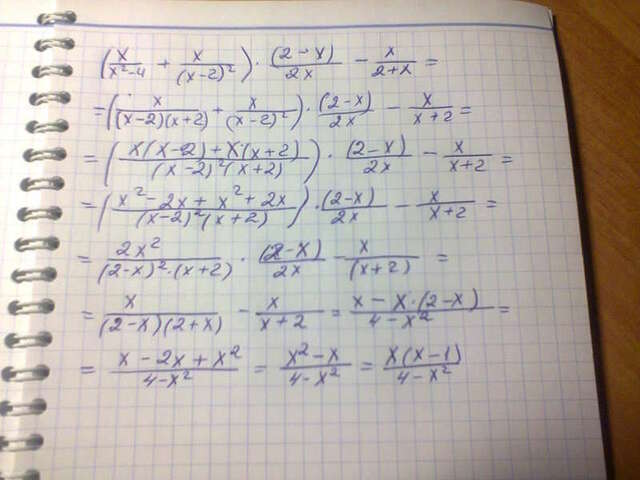 (x/(x²-4) + x/(x-2)²) · (2-x)/2x - x/(2+x) =
= (x/((x-2)(x+2)) + x/(x-2)²) · (2-x)/2x - x/(x+2) =
= ((x(x-2)+x(x+2))/((x-2)²(x+2))) · (2-x)/2x - x/(x+2) =
= ((x²-2x+x²+2x)/((x-2)²(x+2))) · (2-x)/2x - x/(x+2) =
= 2x²/((2-x)²·(x+2)) · (2-x)/2x - x/(x+2) =
= x/((2-x)(2+x)) - x/(x+2) = (x-x·(2-x))/(4-x²) =
= (x-2x+x²)/(4-x²) = (x²-x)/(4-x²) = x(x-1)/(4-x²)